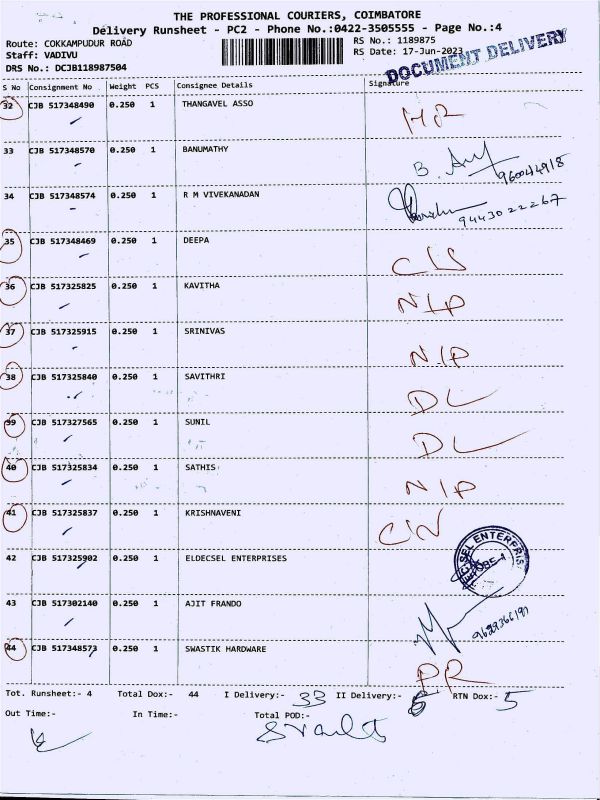 THE PROFESSIONAL COURIERS, COIMBATORE
Delivery Runsheet - PC2 - Phone No.:0422-3505555 - Page No.:4
Route: COKKAMPUDUR ROAD RS No.: 1189875
Staff: VADIVU RS Date: 17-Jun-2023
DRS No.: DCJB118987504
DOCUMENT DELIVERY
S No Consignment No Weight PCS Consignee Details Signature
32 CJB 517348490 0.250 1 THANGAVEL ASSO
33 CJB 517348570 0.250 1 BANUMATHY B.
34 CJB 517348574 0.250 1 R M VIVEKANADAN 9443022267
35 CJB 517348469 0.250 1 DEEPA
36 CJB 517325825 0.250 1 KAVITHA N/P
37 CJB 517325915 0.250 1 SRINIVAS N/P
38 CJB 517325840 0.250 1 SAVITHRI DL
39 CJB 517327565 0.250 1 SUNIL DL
40 CJB 517325834 0.250 1 SATHIS N/P
41 CJB 517325837 0.250 1 KRISHNAVENI
42 CJB 517325902 0.250 1 ELDECSEL ENTERPRISES
43 CJB 517302140 0.250 1 AJIT FRANDO
44 CJB 517348573 0.250 1 SWASTIK HARDWARE PR
Tot. Runsheet:- 4 Total Dox:- 44 I Delivery:- 33 II Delivery:- 6 RTN Dox:- 5
Out Time:- In Time:- Total POD:-